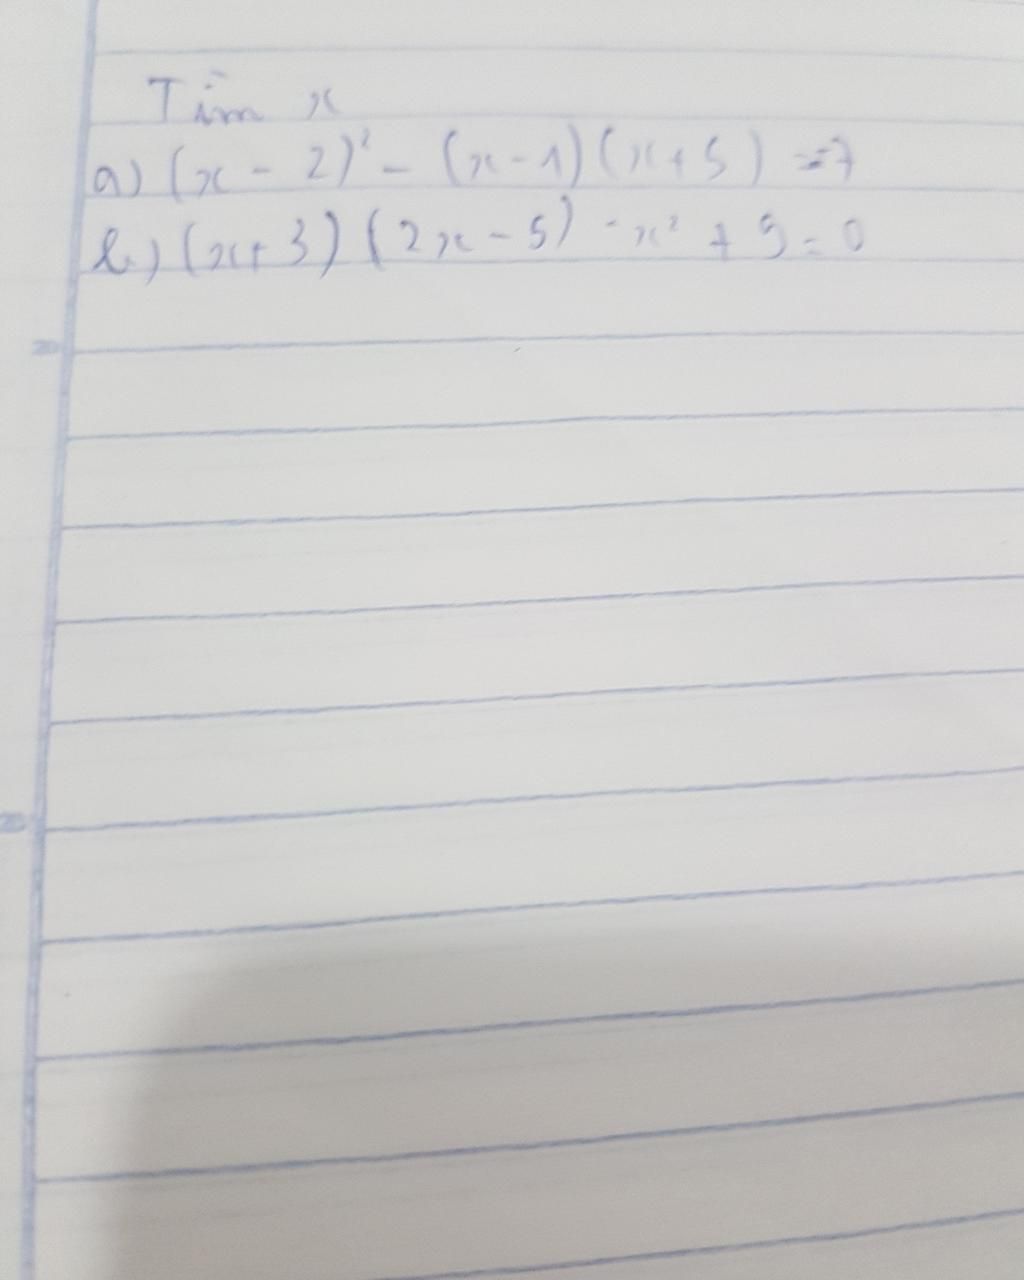 Tìm x
a) (x - 2)² - (x - 1)(x + 5) = -7
b) (x + 3)(2x - 5) - x² + 9 = 0
20
25